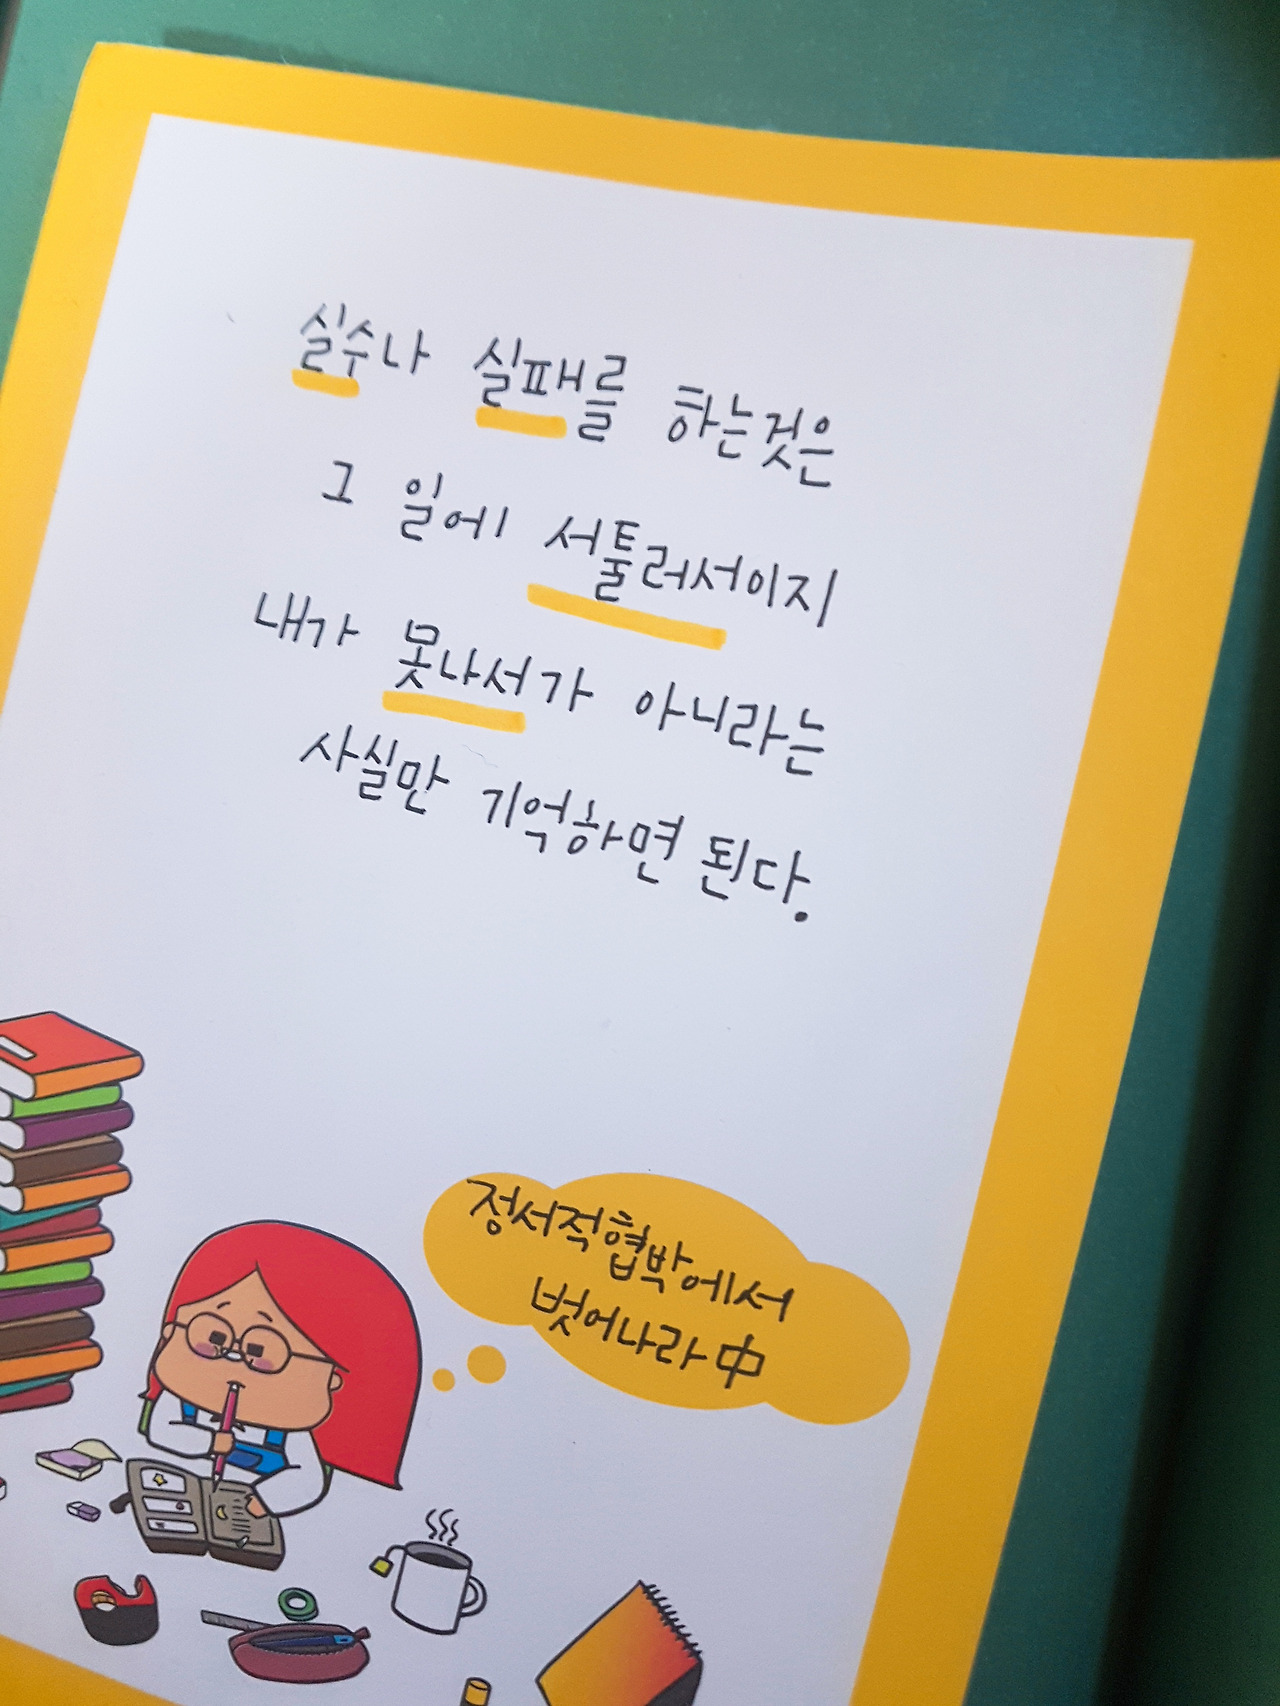 실수나 실패를 하는것은
그 일에 서툴러서이지
내가 못나서가 아니라는
사실만 기억하면 된다.
정서적협박에서
벗어나라中